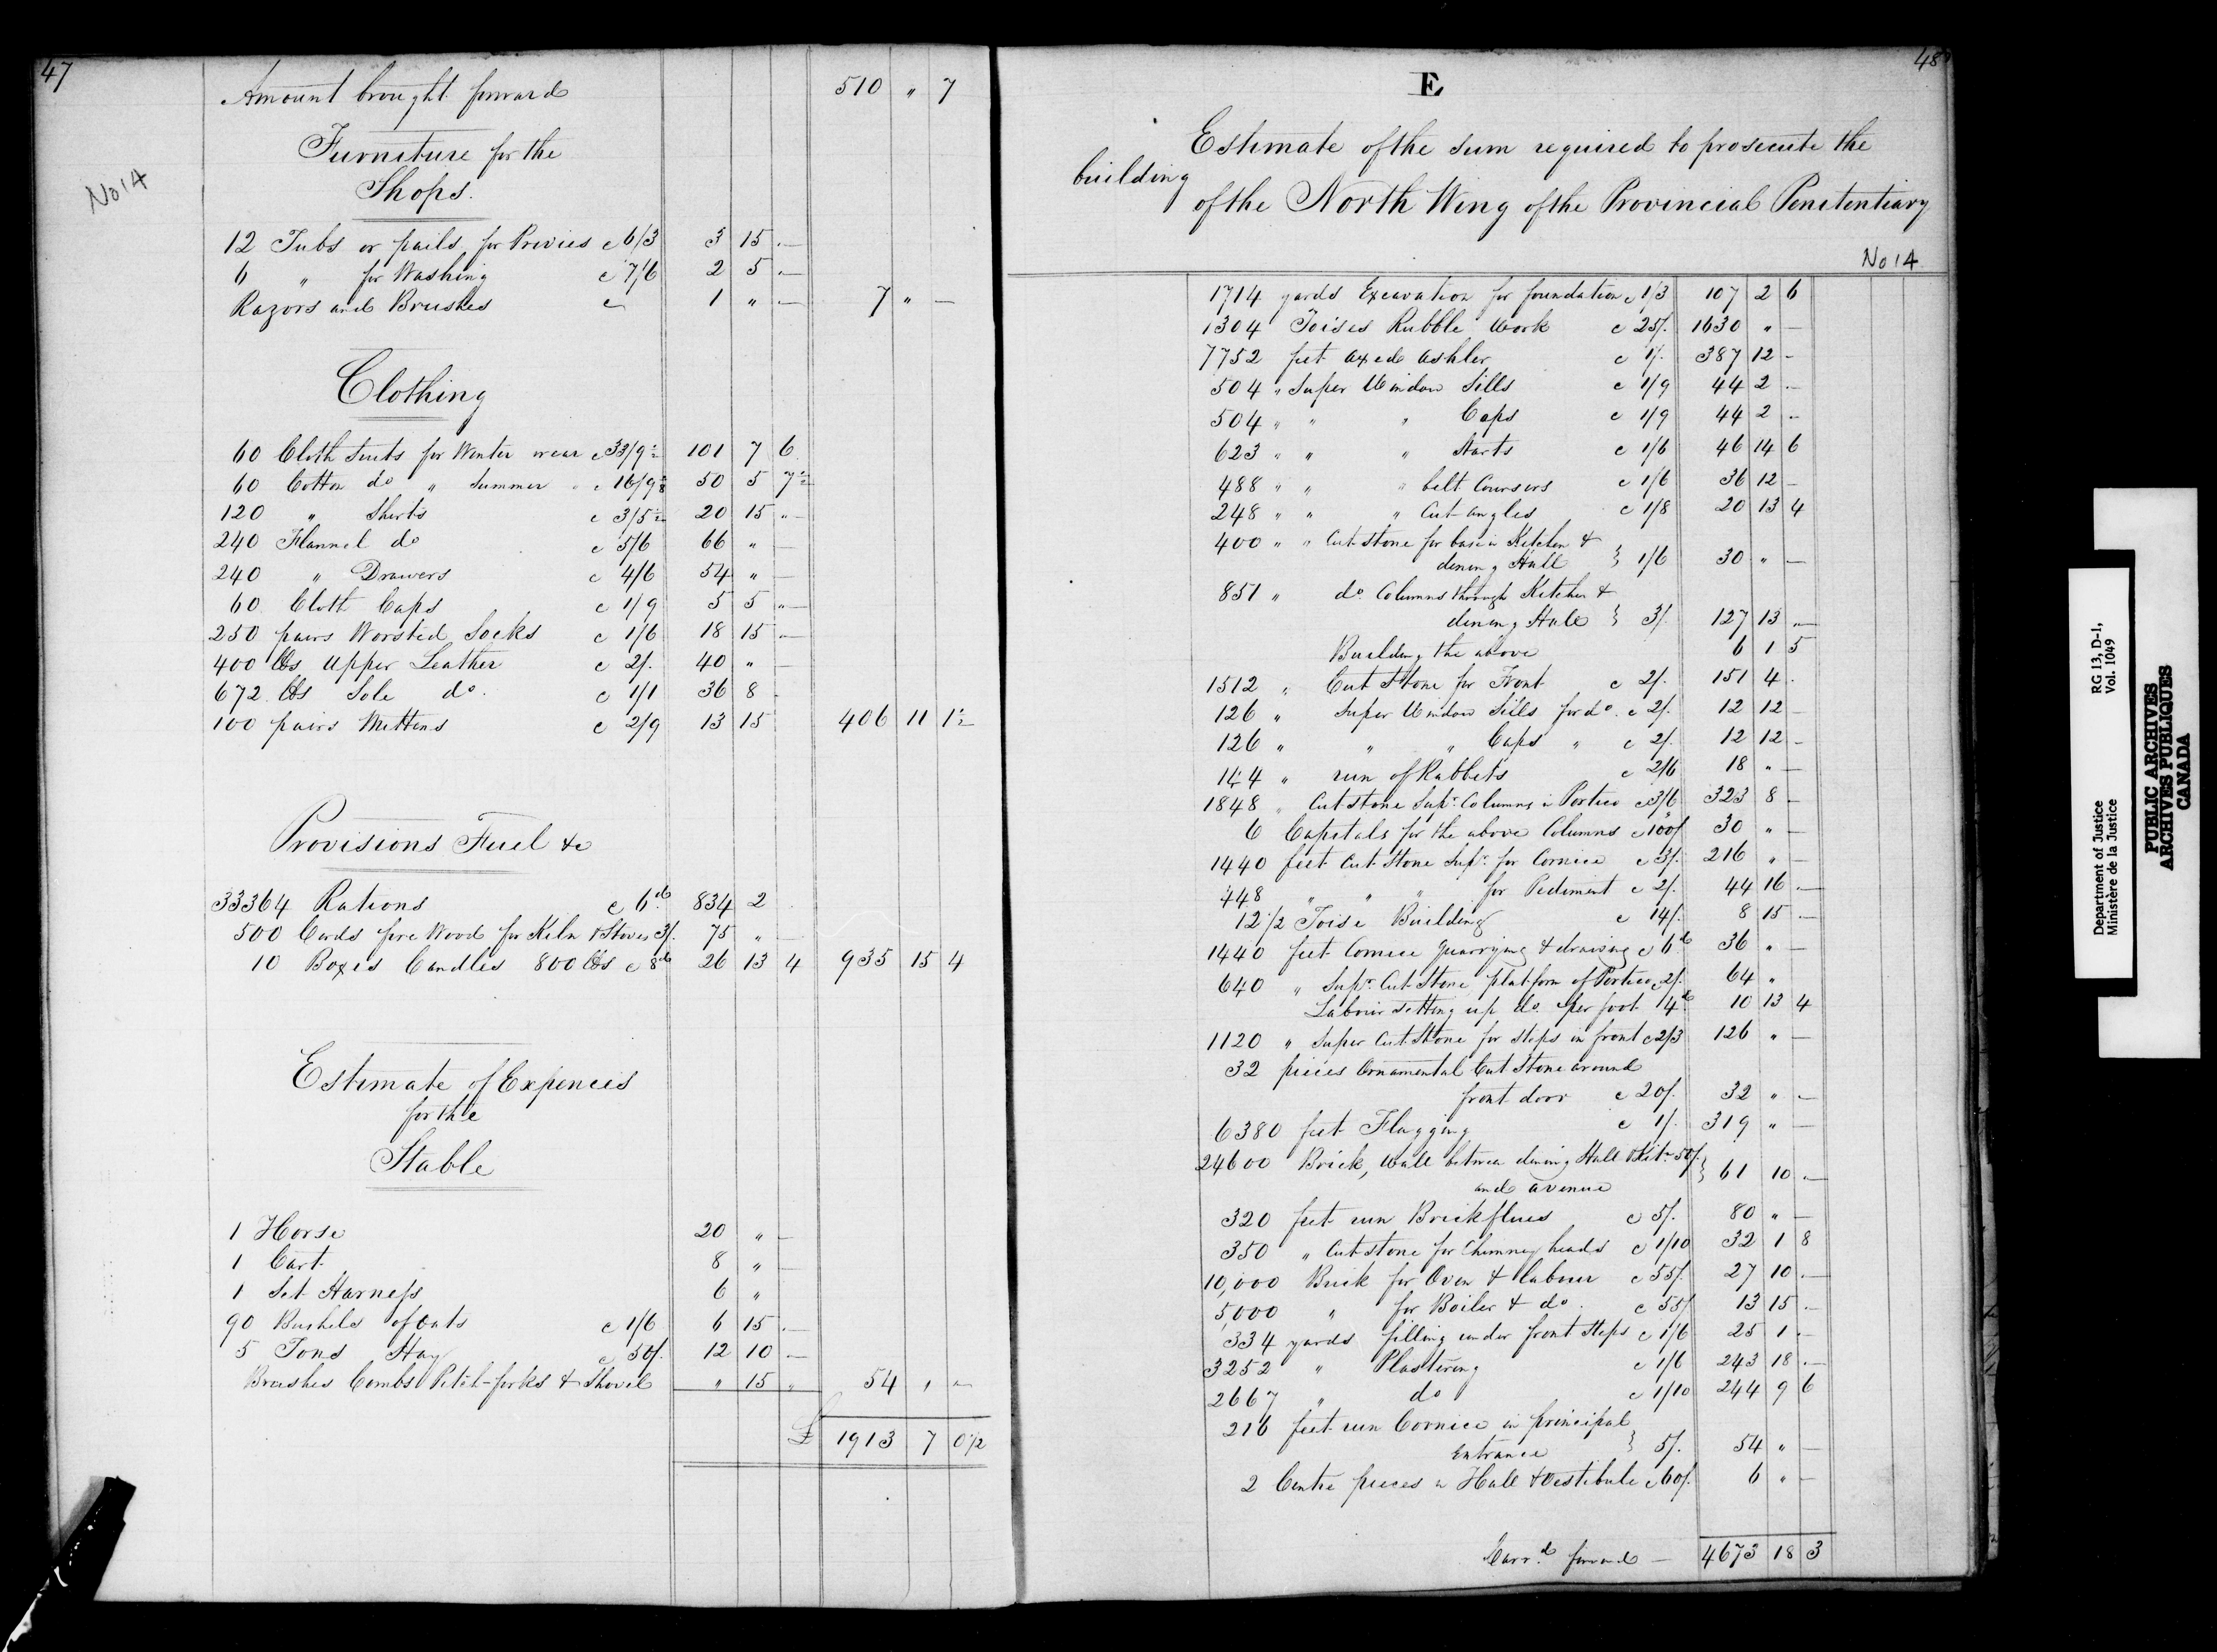 47
Amount brought forward 510 " 7
No 14
Furniture for the
Shops.
12 Tubs or pails for Privies @ 6/3 3 15 —
6 " for Washing @ 7/6 2 5 —
Razors and Brushes @ 1 " — 7 " —
Clothing
60 Cloth Suits for Winter wear @ 33/9½ 101 7 6
60 Cotton do " Summer @ 16/9⅛ 50 5 7½
120 " Shirts @ 3/5½ 20 15 "
240 Flannel do @ 5/6 66 " —
240 " Drawers @ 4/6 54 " —
60 Cloth Caps @ 1/9 5 5 "
250 pairs Worsted Socks @ 1/6 18 15 —
400 lbs Upper Leather @ 2/. 40 " —
672 lbs Sole do. @ 1/1 36 8 -
100 pairs Mittens @ 2/9 13 15 406 11 1½
Provisions Fuel &c
33364 Rations @ 6d 834 2
500 Cords fire Wood for Kiln & Stoves 3/. 75 " —
10 Boxes Candles 800 lbs @ 8d 26 13 4 935 15 4
Estimate of Expences
for the
Stable
1 Horse 20 " —
1 Cart 8 " —
1 Set Harness 6 "
90 Bushels of Oats @ 1/6 6 15 —
5 Tons Hay @ 50/. 12 10 —
Brushes Combs Pitch-forks & Shovel " 15 " 54 " —
£ 1913 7 0½
48
E
Estimate of the sum required to prosecute the
building
of the North Wing of the Provincial Penitentiary
No 14
1714 yards Excavation for foundation @ 1/3 107 2 6
1304 Toises Rubble Work @ 25/. 1630 " —
7752 feet axed ashler @ 1/. 387 12 -
504 " Super Window Sills @ 1/9 44 2 —
504 " " " Caps @ 1/9 44 2 —
623 " " " Starts @ 1/6 46 14 6
488 " " " belt Coursers @ 1/6 36 12 —
248 " " " Cut angles @ 1/8 20 13 4
400 " " Cut Stone for base in Kitchen &
dining Hall } 1/6 30 " —
851 " do. Columns through Kitchen &
dining Hall } 3/. 127 13 —
Building the above 6 1 5
1512 " Cut Stone for Front @ 2/. 151 4 .
126 " Super Window Sills for do. @ 2/. 12 12 —
126 " " " Caps " @ 2/. 12 12 -
144 " run of Rabbets @ 2/6 18 " —
1848 " Cut stone Supr. Columns in Portico @ 3/6 323 8 —
6 Capitals for the above Columns @ 100/ 30 " —
1440 feet Cut Stone Supr. for Cornice @ 3/. 216 " —
448 " " " for Pediment @ 2/. 44 16 —
12 1/2 Toise Building @ 14/. 8 15 —
1440 feet Cornice quarrying & drawing @ 6d 36 " —
640 " Supr. Cut Stone platform of Portico @ 2/. 64 "
Labour setting up do. per foot 4d 10 13 4
1120 " Super Cut Stone for steps in front @ 2/3 126 " —
32 pieces Ornamental Cut Stone around
front door @ 20/. 32 " —
6380 feet Flagging @ 1/. 319 " —
24600 Brick, Wall between dining Hall & Kitn 50/.
and avenue } 61 10 —
320 feet run Brick flues @ 5/. 80 " —
350 " Cut stone for Chimney heads @ 1/10 32 1 8
10,000 Brick for Oven & labour @ 55/. 27 10 —
5,000 " for Boiler & do. @ 55/ 13 15 —
334 yards filling under front Steps @ 1/6 25 1 —
3252 " Plastering @ 1/6 243 18 —
2667 " do @ 1/10 244 9 6
216 feet run Cornice in principal
Entrance } 5/. 54 " —
2 Centre pieces in Hall & Vestibule @ 60/. 6 " —
Carrd. forward — 4673 18 3
Department of Justice
Ministère de la Justice
RG 13, D-1,
Vol. 1049
PUBLIC ARCHIVES
ARCHIVES PUBLIQUES
CANADA